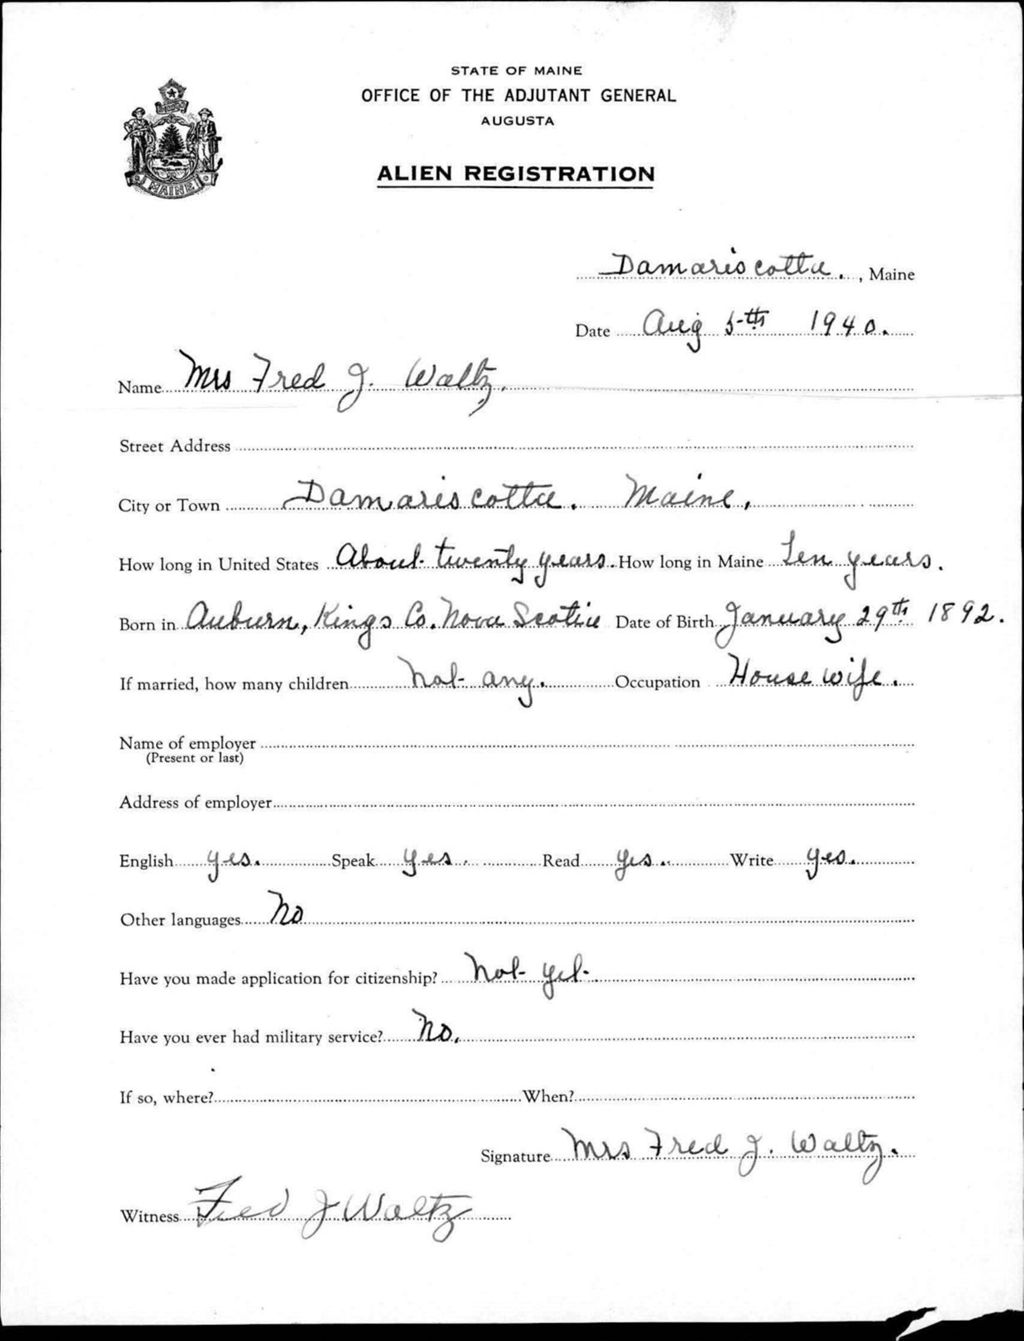 STATE OF MAINE
OFFICE OF THE ADJUTANT GENERAL
AUGUSTA
ALIEN REGISTRATION
MAINE
Damariscotta. , Maine
Date Aug 5th 1940.
Name Mrs Fred J. Waltz,
Street Address
City or Town Damariscotta. Maine,
How long in United States About twenty years. How long in Maine Ten years.
Born in Auburn, Kings Co. Nova Scotia Date of Birth January 29th 1892.
If married, how many children Not any. Occupation House wife.
Name of employer
(Present or last)
Address of employer
English yes. Speak yes. Read yes. Write yes.
Other languages No
Have you made application for citizenship? Not yet
Have you ever had military service? No.
If so, where? When?
Signature Mrs Fred J. Waltz.
Witness Fred J Waltz